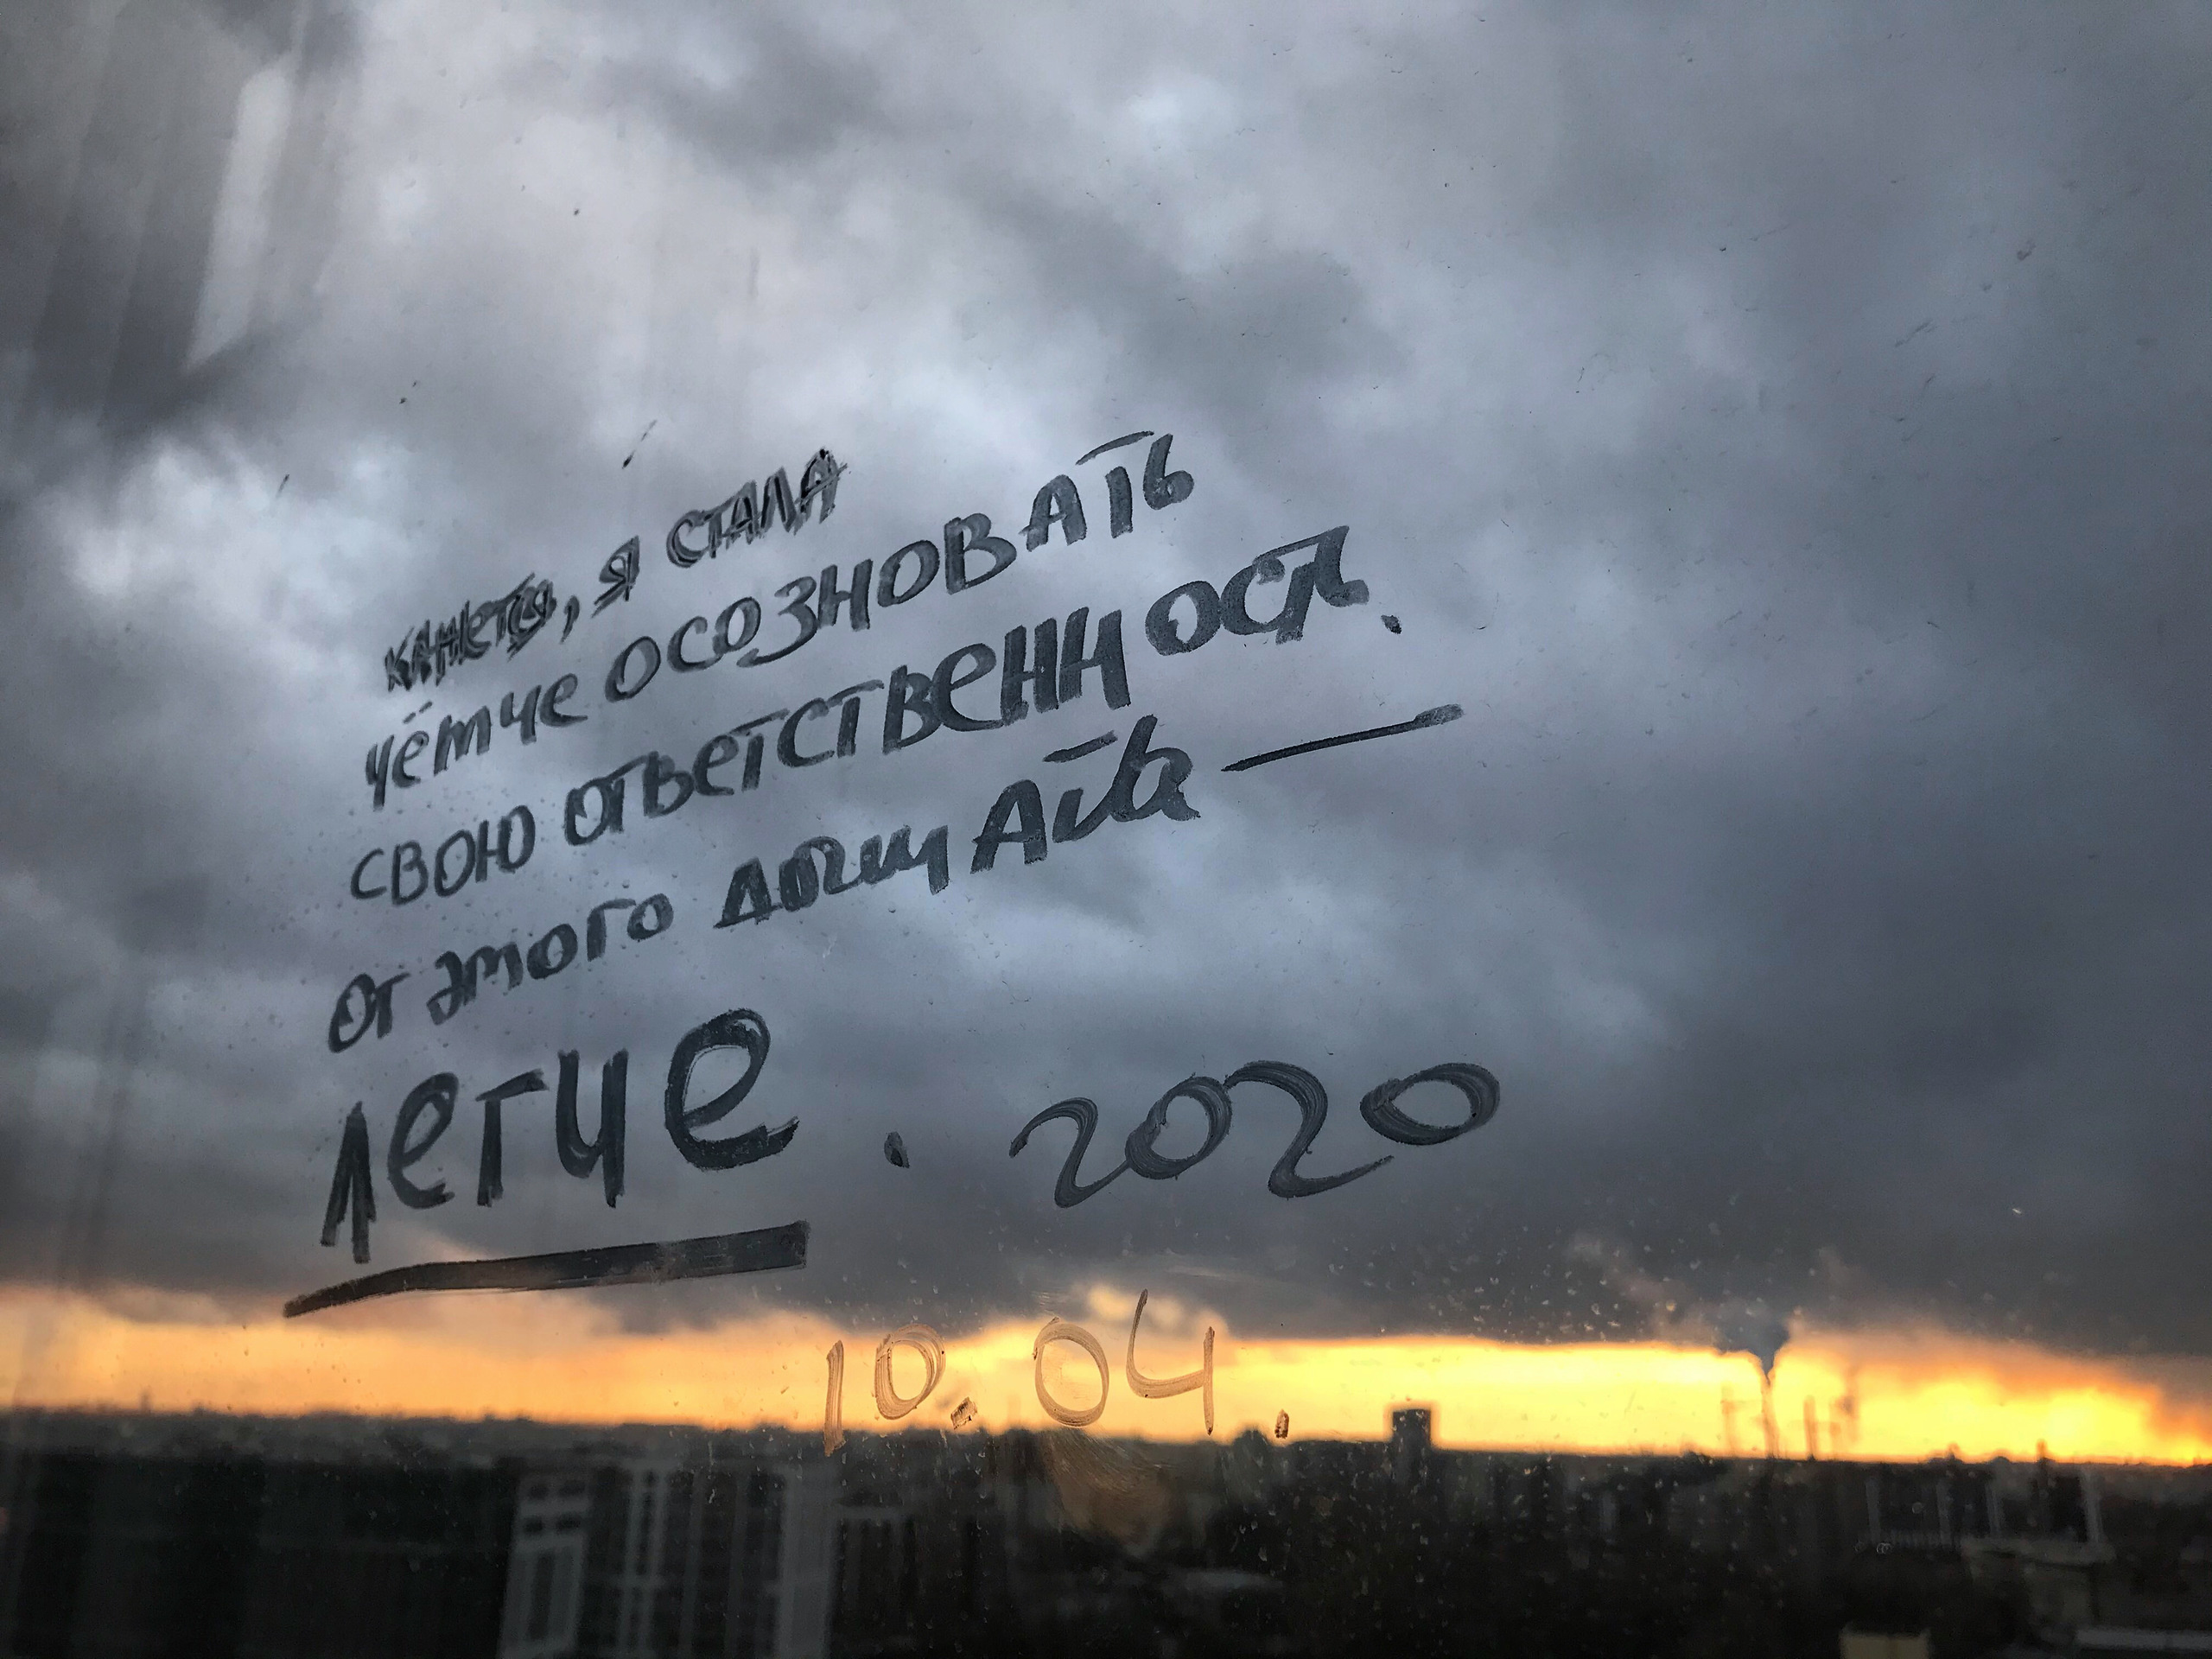 кажется, я стала
чётче осозновать
свою ответственность.
от этого дышать —
легче. 2020
10.04.